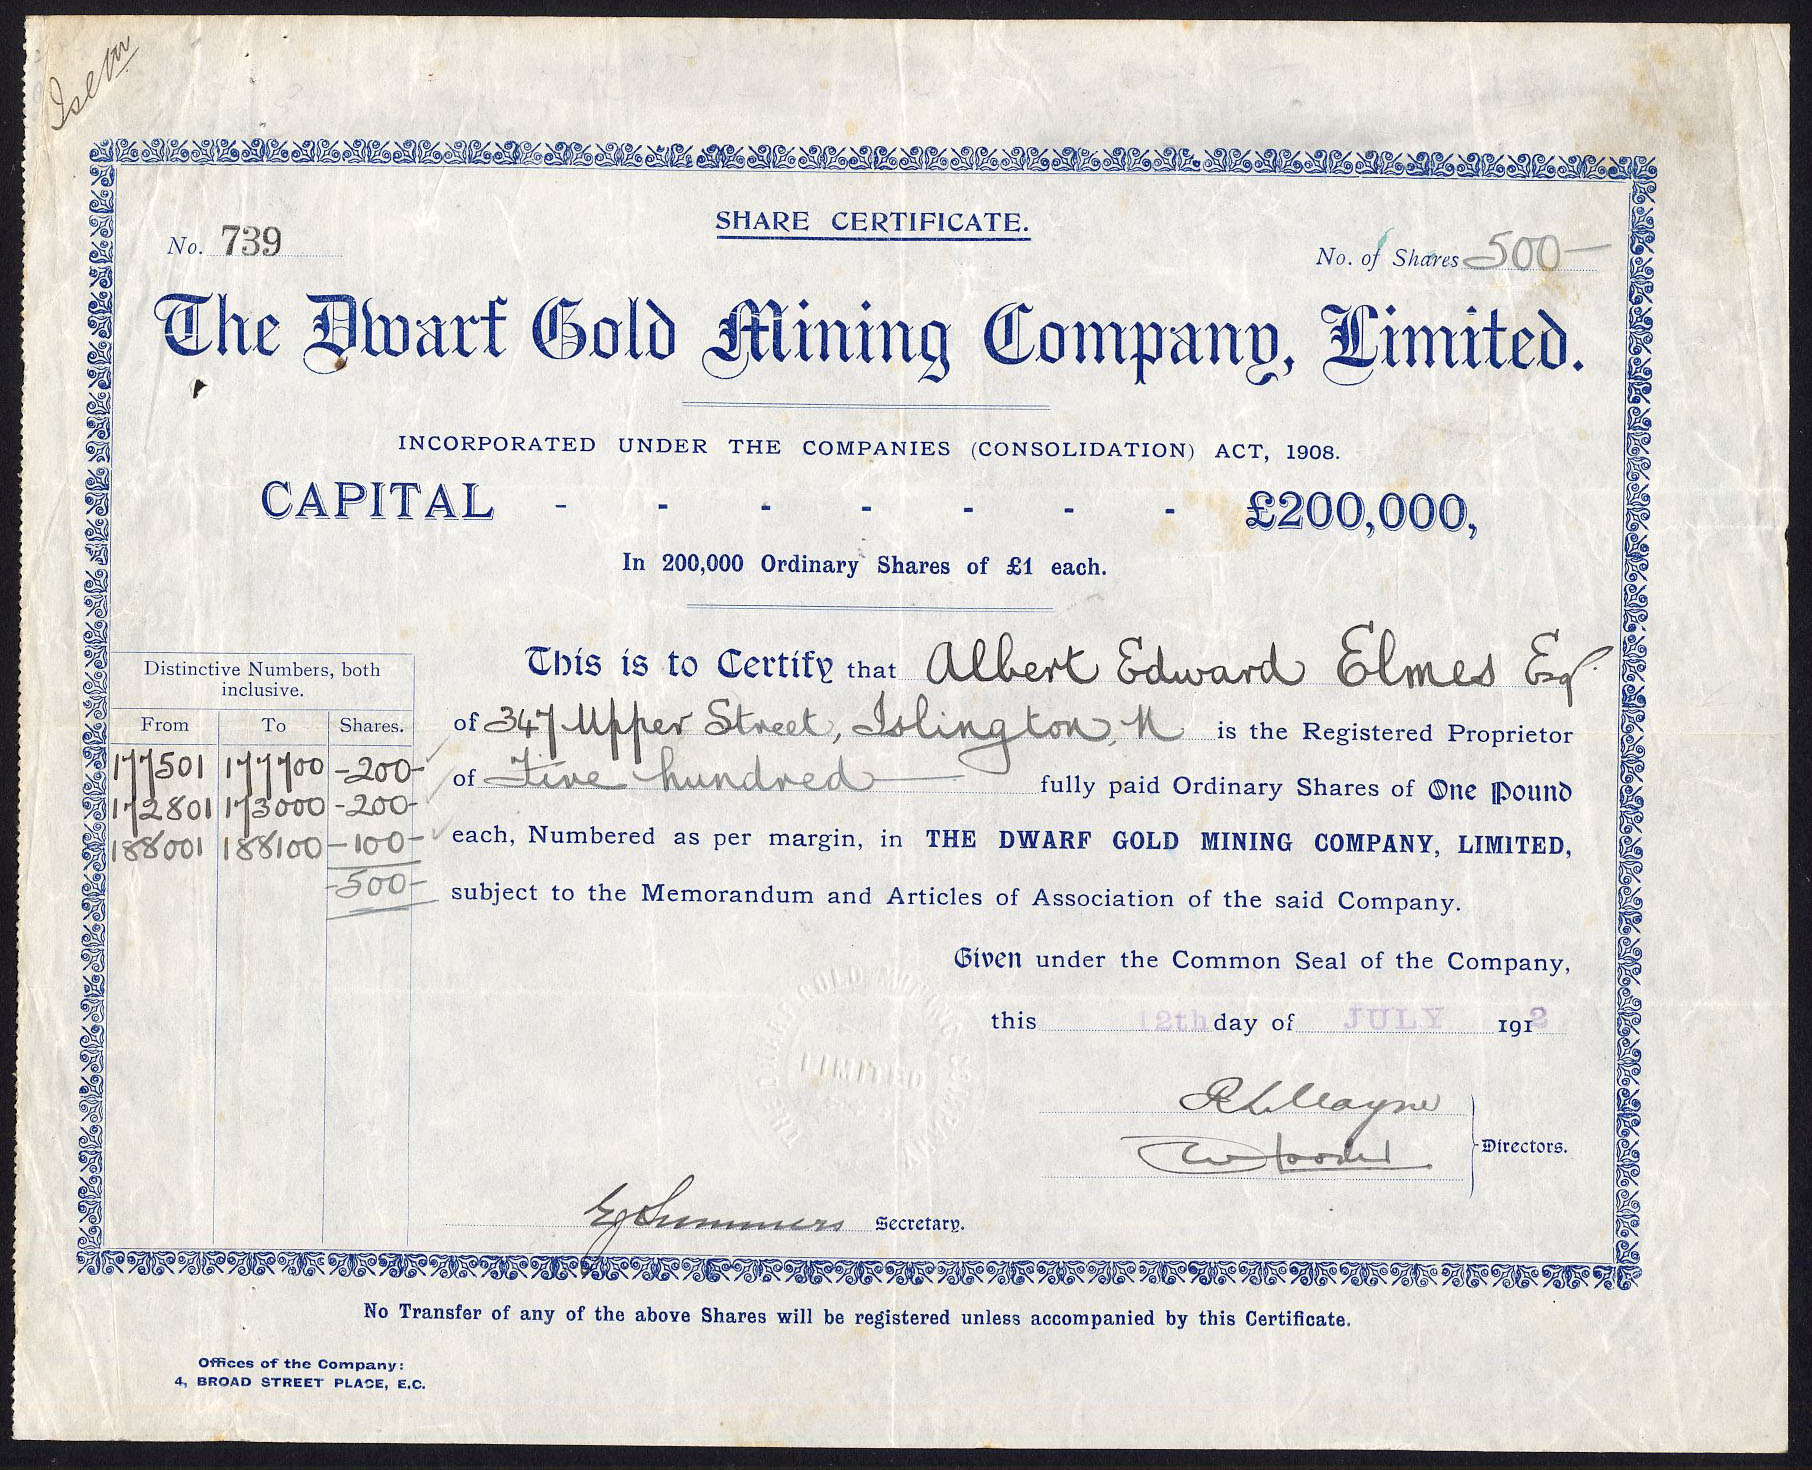 SHARE CERTIFICATE.
No. 739
No. of Shares 500-
The Dwarf Gold Mining Company, Limited.
INCORPORATED UNDER THE COMPANIES (CONSOLIDATION) ACT, 1908.
CAPITAL - - - - - - - £200,000,
In 200,000 Ordinary Shares of £1 each.
This is to Certify that Albert Edward Elmes Esq.
of 347 Upper Street, Islington, N is the Registered Proprietor
of Five hundred fully paid Ordinary Shares of One Pound
each, Numbered as per margin, in THE DWARF GOLD MINING COMPANY, LIMITED,
subject to the Memorandum and Articles of Association of the said Company.
Distinctive Numbers, both
inclusive.
From To Shares.
177501 177700 -200-
172801 173000 -200-
188001 188100 -100-
-500-
Given under the Common Seal of the Company,
this 12th day of JULY 1912
LIMITED
R L Mayne
Directors.
EJ Summers Secretary.
No Transfer of any of the above Shares will be registered unless accompanied by this Certificate.
Offices of the Company:
4, BROAD STREET PLACE, E.C.